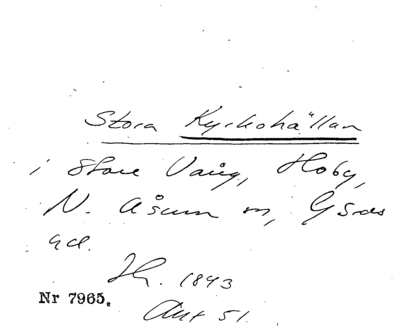 Stora Kyrkohällan
i Store Vång, Hoby,
N. Åsum sn, Gärds
hd.
1843
Nr 7965.
Akt 51.